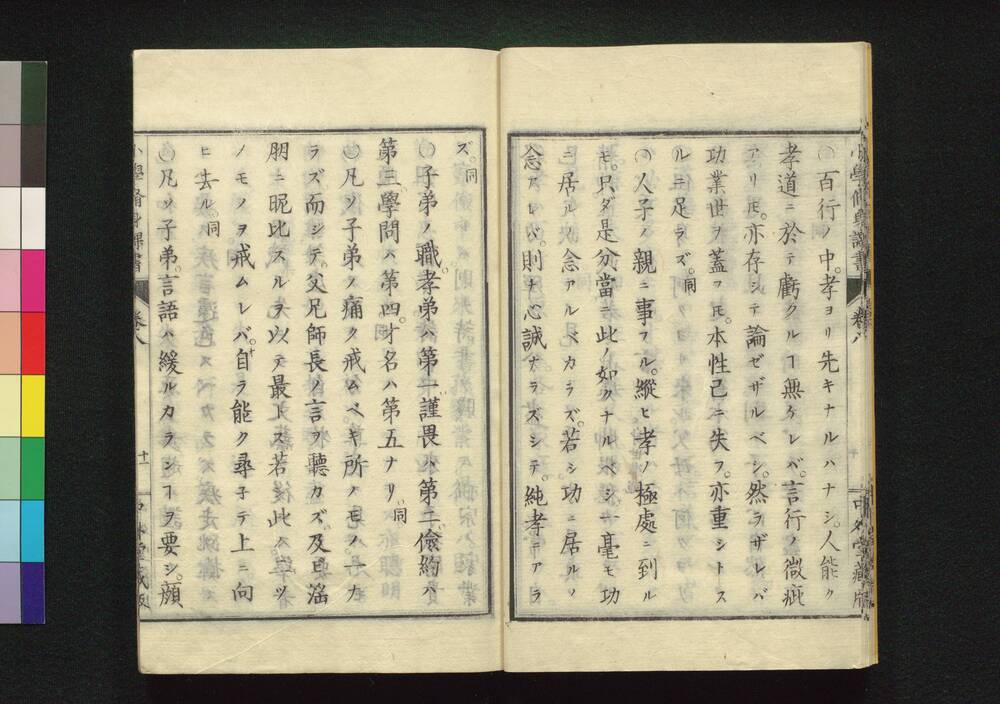 ○百行ノ中。孝ヨリ先キナルハナシ。人能ク
孝道ニ於テ虧クルヿ無ケレバ。言行ノ微疵
アリモ。亦存シテ論ゼザルベシ。然ラザレバ
功業世ヲ蓋フ𪜈。本性已ニ失フ。亦重シトス
ルニ足ラズ。同
○人子ノ親ニ事フル。縱ヒ孝ノ極處ニ到ル
モ。只ダ是分當ニ此ノ如クナルベシ。一毫モ功
ニ居ルノ念アルベカラズ。若シ功ニ居ルノ
念アレバ。則ナ心誠ナラズシテ。純孝ニアラ
小學修身課書
卷八
中外堂藏版
ズ。同
○子弟ノ職。孝弟ハ第一謹畏ハ第二。儉約ハ
第三學問ハ第四。才名ハ第五ナリ。同
○凡ソ子弟ノ痛ク戒ムベキ所ノモノ。一ナ
ラズ而シテ。父兄師長ノ言ヲ聽カズ。及ビ滛
朋ニ昵比スルヲ以テ最トス。若後此ノ
ノモノヲ戒ムレバ。自ラ能ク尋子テ上ニ向
ヒ去ル。同
○凡ソ子弟。言語ハ緩ルカランヿヲ要シ。顔
小學脩身課書
卷八
十一